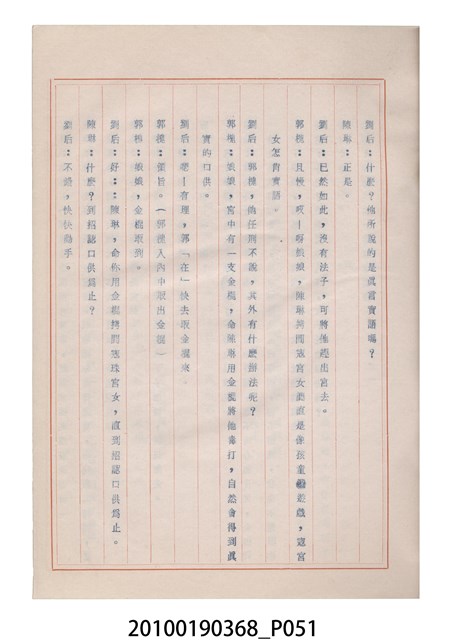 劉后：什麼？他所說的是眞言實語嗎？
陳琳：正是。
劉后：已然如此，沒有法子，可將他趕出宮去。
郭槐：且慢，哎－呀娘娘，陳琳拷問寇宮女簡直是像孩童遊戲，寇宮
女怎肯實語。
劉后：郭槐，倘任刑不說，其外有什麼辦法呢？
郭槐：娘娘，宮中有一支金棍，命陳琳用金棍將他毒打，自然會得到眞
實的口供。
劉后：有理，郭「在」快去取金棍來
郭槐：領旨。（郭槐入內中取出金棍）
郭槐：娘娘，金棍取到。
劉后：好…陳琳，命你用金棍拷問寇珠宮女，直到招認口供爲止。
陳琳：什麼？到招認口供爲止？
劉后：不錯，快快動手。
20100190368_P051